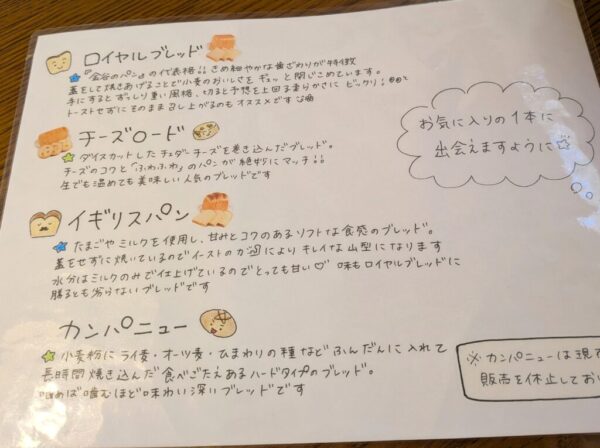 ロイヤルブレッド
『金谷のパン』の代表格!! きめ細やかな歯ざわりが特徴
蓋をして焼きあげることで小麦のおいしさをギュッと閉じこめています。
手にするとずっしり重い風格、切ると予想を上回る柔らかさにビックリ!
トーストせずにそのまま召し上がるのもオススメです
チーズロード
ダイスカットしたチェダーチーズを巻き込んだブレッド。
チーズのコクと「ふわふわ」のパンが絶妙にマッチ!!
生でも温めても美味しい人気のブレッドです
イギリスパン
たまごやミルクを使用し、甘みとコクのあるソフトな食感のブレッド。
蓋をせずに焼いているのでイーストの力によりキレイな山型になります
水分はミルクのみで仕上げているのでとっても甘い♡ 味もロイヤルブレッドに
勝るとも劣らないブレッドです
カンパニュー
小麦粉にライ麦・オーツ麦・ひまわりの種などふんだんに入れて
長時間焼き込んだ食べごたえあるハードタイプのブレッド。
噛めば噛むほど味わい深いブレッドです
お気に入りの1本に
出会えますように☆
※カンパニューは現
販売を休止してお